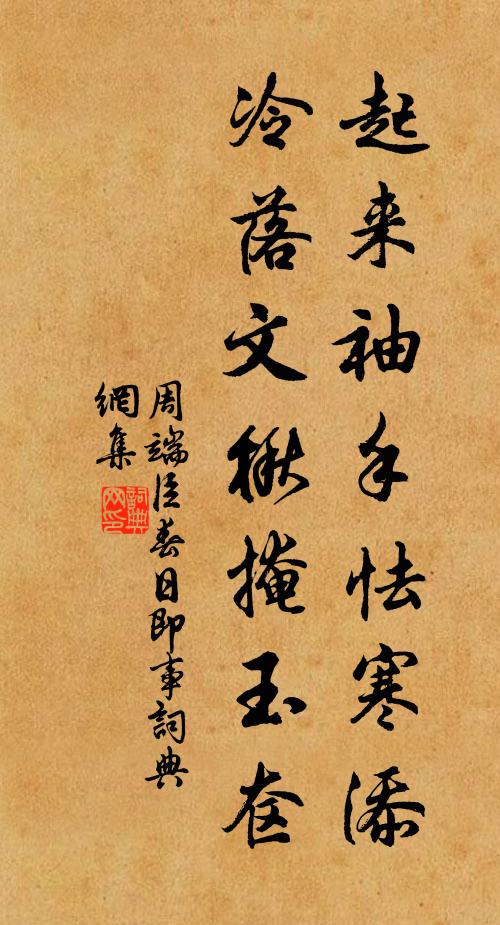 起来袖手怯寒添
冷落文楸掩玉奁
周端臣春日即事詞典
網集
詞典网印